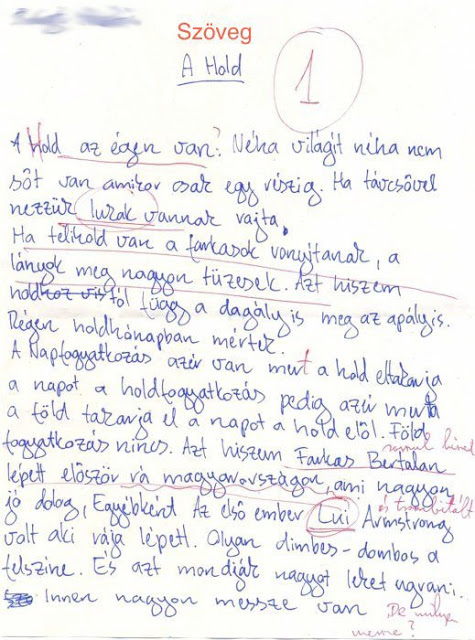 Szöveg
A Hold
1
A Hold az égen van? Néha világít néha nem
sőt van amikor csak egy részig. Ha távcsővel
nezzük lukak vannak rajta.
Ha telihold van a farkasok vonyítanak, a
lányok meg nagyon tüzesek. Azt hiszem
hold től függ a dagály is meg az apályis.
Régen holdhónapban mértek.
A Napfogyatkozás azér van mert a hold eltakarja
a napot a holdfogyatkozás pedig azér mert a
a föld takarja el a napot a hold elől. Föld
fogyatkozás nincs. Azt hiszem Farkas Bertalan
lépett elöször rá magyarországon, ami nagyon
jó dolog. Egyébként Az első ember Lui Armstrong
volt aki rája lépett. Olyan dimbes-dombos a
felszíne. És azt mondják nagyot lehet ugrani.
Innen nagyon messze van
De milyen
messze?